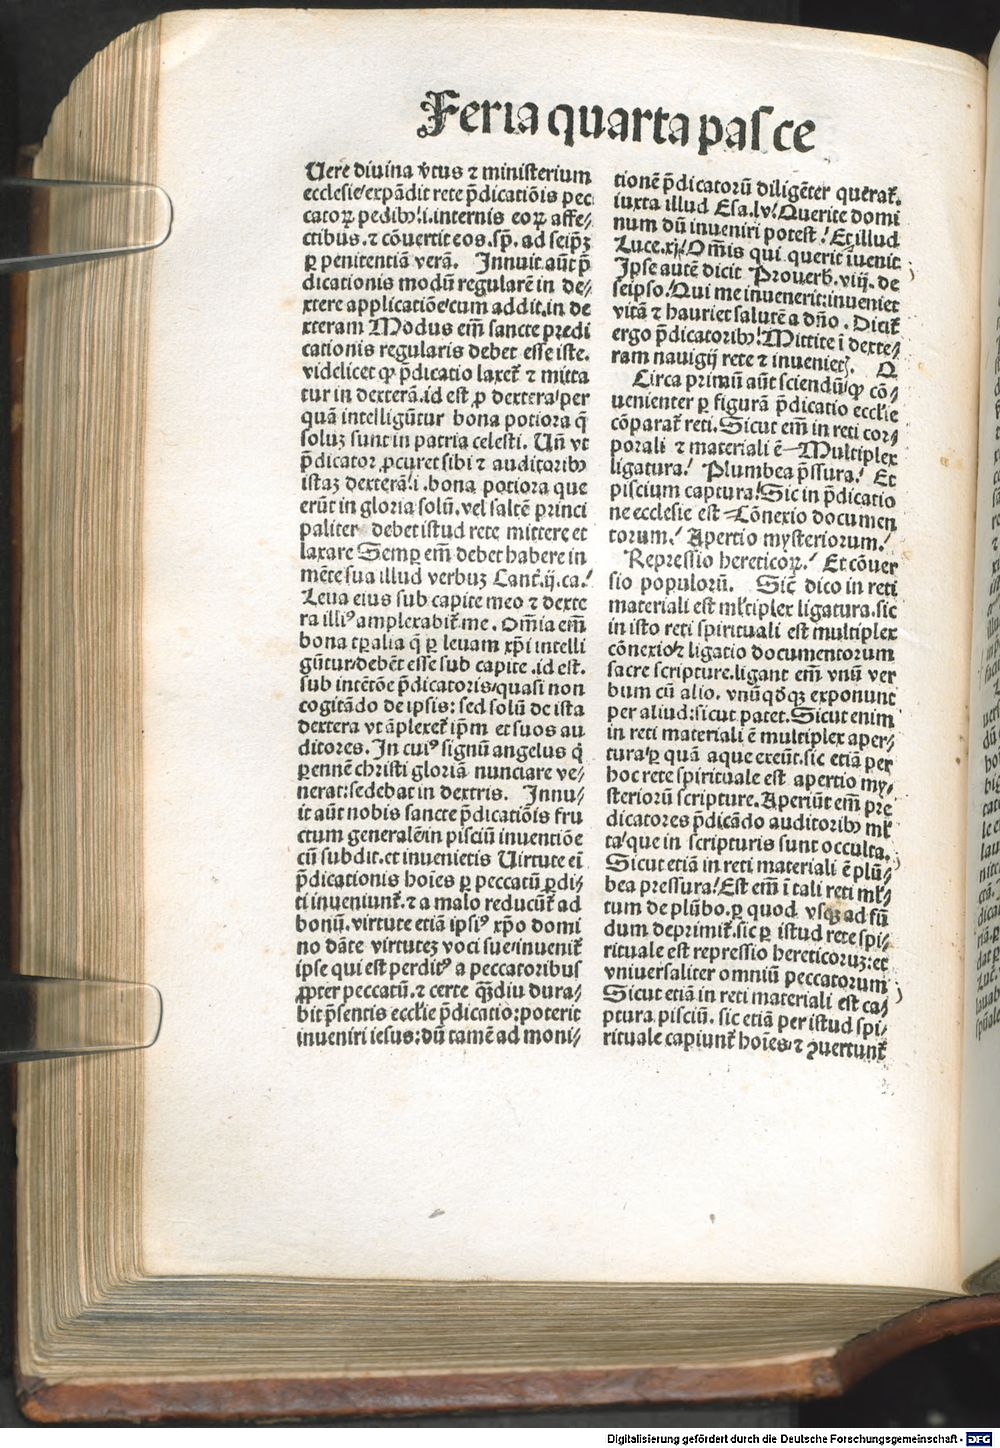 Feria quarta pasce
Uere diuina v̾tus ⁊ ministerium
ecclesie/expãdit rete p̃dicatiõis pec
catoꝝ pedibꝰ/.i.internis eoꝝ affe⸗
ctibus.⁊ cõuertit eos.sp̃. ad seipꝫ
ꝑ penitentiã verã. Innuit aũt p̃
dicationis modũ regularẽ in de⸗
xtere applicatiõe/cum addit.in de
xteram Modus em̃ sancte predi
cationis regularis debet esse iste.
videlicet ꝙ p̃dicatio laxet᷑ ⁊ mitta
tur in dexterã.id est ꝓ dextera/per
quã intelligũtur bona potiora q̃
soluꝫ sunt in patria celesti. Uñ vt
p̃dicator ꝓcuret sibi ⁊ auditoribꝰ
istaꝫ dexterã/.i.bona potiora que
erũt in gloria solũ.vel saltẽ princi
paliter debet istud rete mittere et
laxare Semꝑ em̃ debet habere in
mẽte sua illud verbuꝫ Cant̾.ij.ca.
Leua eius sub capite meo ⁊ dexte
ra illiꝰ amplexabit᷑ me. Om̃ia em̃
bona tꝑalia q̃ ꝑ leuam xp̃i intelli
gũtur/debẽt esse sub capite.id est.
sub intẽtõe p̃dicatoris/quasi non
cogitãdo de ipsis: sed solũ de ista
dextera vt ãplexet᷑ ip̃m et suos au
ditores. In cuiꝰ signũ angelus q̇
ꝑennẽ christi gloriã nunciare ve⸗
nerat:sedebat in dextris. Innu⸗
it aũt nobis sancte p̃dicatiõis fru
ctum generalẽ/in pisciũ inuentiõe
cũ subdit.et inuenietis Uirtute em̃
p̃dicationis hoĩes ꝑ peccatũ ꝑdi⸗
ti inueniunt᷑.⁊ a malo reducũt᷑ ad
bonũ.virtute etiã ipsiꝰ xp̃o domi
no dãte virtuteꝫ voci sue/inuenit᷑
ipse qui est perditꝰ a peccatoribus
ꝓpter peccatũ.⁊ certe qꝫdiu dura⸗
bit p̃sentis eccl̃ie p̃dicatio:poterit
inueniri iesus:dũ tamẽ ad moni⸗
tionẽ p̃dicatorũ diligẽter querat᷑.
iuxta illud Esa.lv. Querite domi
num dũ inueniri potest. Et illud
Luce.xj. Om̃is qui querit ĩuenit
Ipse autẽ dicit Prouerb̾.viij. de
seipso.Qui me inuenerit:inueniet
vitã ⁊ hauriet salutẽ a dño. Dicit᷑
ergo p̃dicatoribꝰ. Mittite ĩ dexte⸗
ram nauigij rete ⁊ inueniet̾. Q
Circa primũ aũt sciendũ/ꝙ cõ⸗
uenienter ꝑ figurã p̃dicatio eccl̃ie
cõparat᷑ reti.Sicut em̃ in reti cor⸗
porali ⁊ materiali ẽ Multiplex
ligatura. Plumbea p̃ssura. Et
piscium captura. Sic in p̃dicatio
ne ecclesie est Cõnexio documen
torum. Apertio mysteriorum.
Repressio hereticoꝝ. Et cõuer
sio populorũ. Sic̃ dico in reti
materiali est ml̾tiplex ligatura.sic
in isto reti spirituali est multiplex
cõnexio/⁊ ligatio documentorum
sacre scripture.ligant em̃ vnũ ver
bum cũ alio. vnũqdqꝫ exponunt
per aliud:sicut patet.Sicut enim
in reti materiali ẽ multiplex aper⸗
tura/ꝑ quã aque exeũt.sic etiã per
hoc rete spirituale est apertio my⸗
steriorũ scripture.Aperiũt em̃ pre
dicatores p̃dicãdo auditoribꝰ ml̾
ta/que in scripturis sunt occulta.
Sicut etiã in reti materiali ẽ plũ⸗
bea pressura. Est em̃ ĩ tali reti ml̾⸗
tum de plũbo.ꝑ quod vsqꝫ ad fũ
dum deprimit᷑.sic ꝑ istud rete spi⸗
rituale est repressio hereticoruꝫ:et
vniuersaliter omniũ peccatorum
Sicut etiã in reti materiali est ca⸗
ptura pisciũ. sic etiã per istud spi⸗
rituale capiunt᷑ hoĩes/⁊ ꝯuertunt᷑
Digitalisierung gefördert durch die Deutsche Forschungsgemeinschaft - DFG